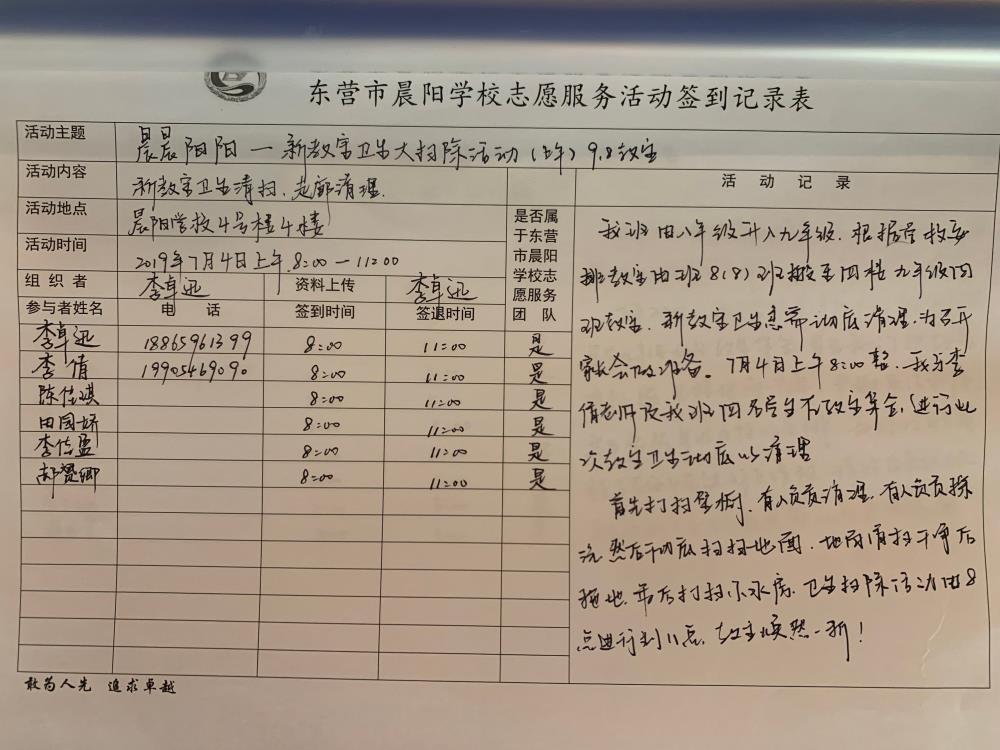 东营市晨阳学校志愿服务活动签到记录表
活动主题 晨晨阳阳一新教室卫生大扫除活动（上午）9.8教室
活动内容 新教室卫生清扫、走廊清理.
活动地点 晨阳学校4号楼4楼
活动时间 2019年7月4日上午 8:00 — 11:00
组织者 李卓迅 资料上传 李卓迅
参与者姓名 电话 签到时间 签退时间
是否属
于东营
市晨阳
学校志
愿服务
团队
李卓迅 18865961399 8:00 11:00 是
李倩 19905469090 8:00 11:00 是
陈佳琪 8:00 11:00 是
田园娇 8:00 11:00 是
李佳盈 8:00 11:00 是
郝赟卿 8:00 11:00 是
活动记录
我班由八年级升入九年级，根据学校安
排教室由班8(8)班搬至四楼九年级四
班教室，新教室卫生急需彻底清理，为召开
家长会做准备。7月4日上午8:00整，我与李
倩老师及我班四名学生在教室集合，进行此
次教室卫生彻底的清理
首先打扫壁橱，有人负责清理，有人负责擦
洗，然后彻底扫扫地面，地面清扫干净后
拖地，最后打扫小水房，卫生扫除活动由8
点进行到11点，教室焕然一新！
敢为人先 追求卓越